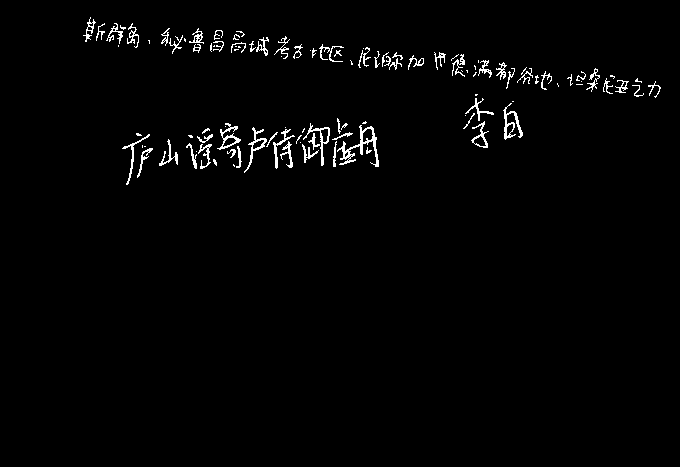 斯群岛、秘鲁昌昌城考古地区、尼泊尔加德满都谷地、坦桑尼亚乞力
庐山谣寄卢侍御虚舟 李白